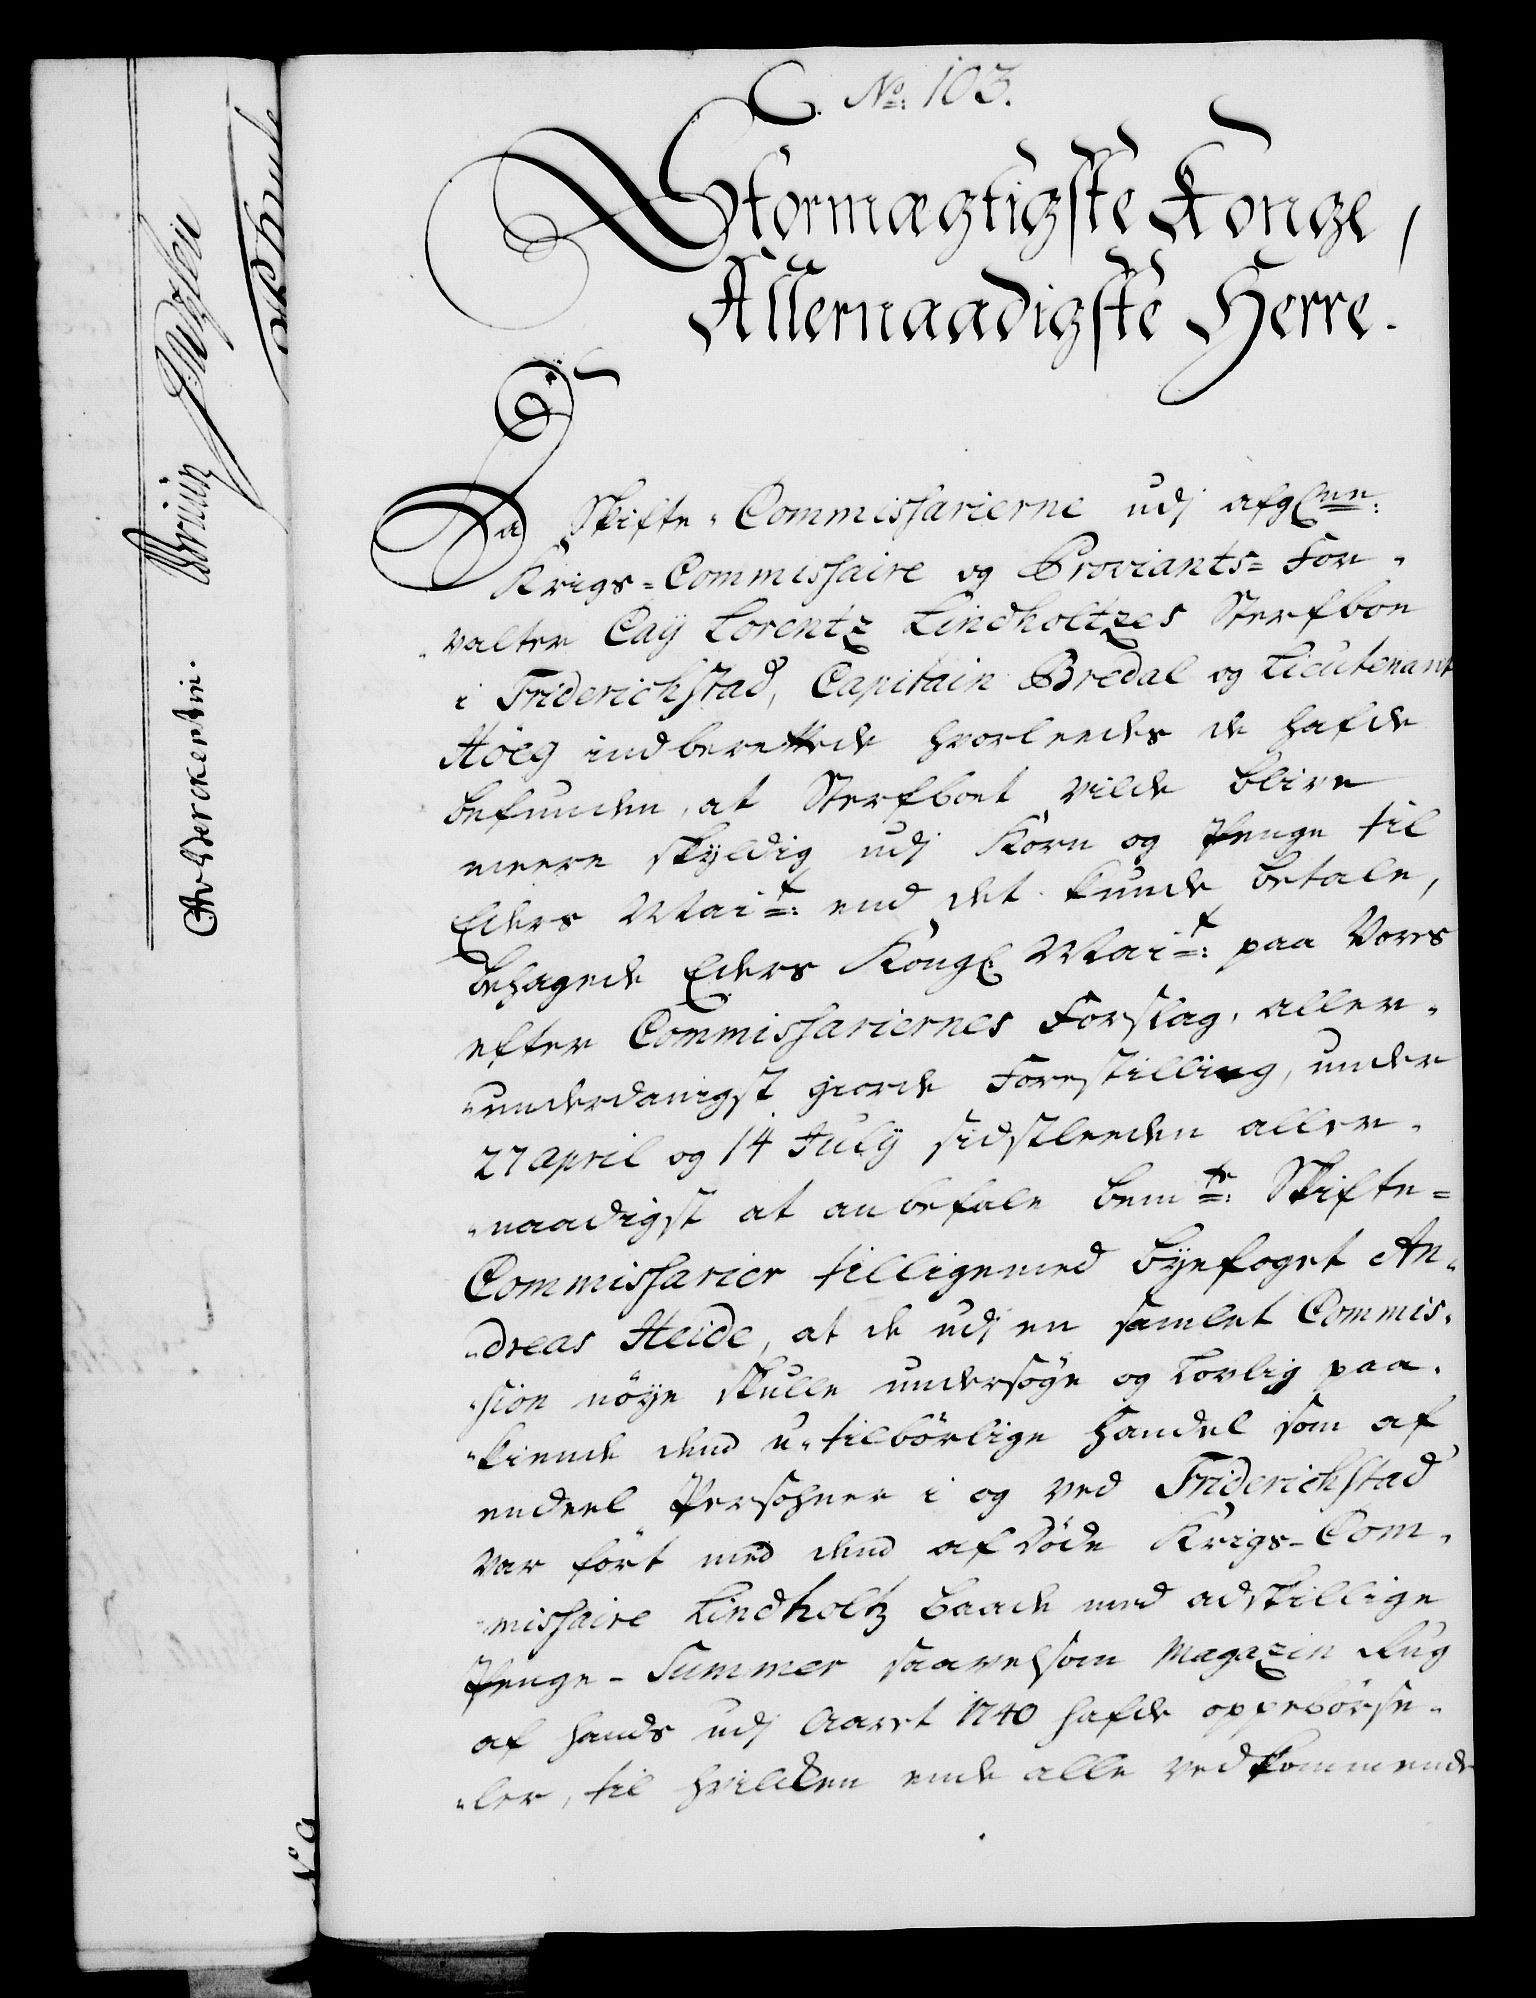 C. No: 103.
Stormægtigste Konge,
Allernaadigste Herre.
Da Skifte-Commissarierne udj afgl.ne:
Krigs=Commissaire og Proviants=For-
-valter Caÿ Lorentz Lindholtzes Sterfboe
i Friderichstad, Capitain Bredal og Lieutenant
Höeg indberettede hvorleedes de hafde
befunden, at Sterfboet vilde blive
meere skÿldig udj Korn og Penge til
Eders Mai.t: end det kunde betale,
behagede Eders Kongl. Mai.t: paa Vores
efter Commissariernes Forslag, aller-
-underdanigst giorde Forestilling, under
27 april og 14 Julÿ sidstleeden aller-
-naadigst at anbefale bem.te: Skifte=
Commissarier tilligemed bÿefoget An-
-dreas Heide, at de udj en samlet Commis-
-sion nöÿe skulle undersöge og Lovlig paa-
-kiende dend u-tilbörlige Handel som af
endeel Persohner i og ved Friderichstad
var fört med dend afdöde Krigs-Com-
-missaire Lindholtz baade med adskillige
Penge-Summer saavelsom Magazin Rug
af hands udj Aaret 1740 hafde oppebörse-
-ler, til hvilcken ende alle vedkommende